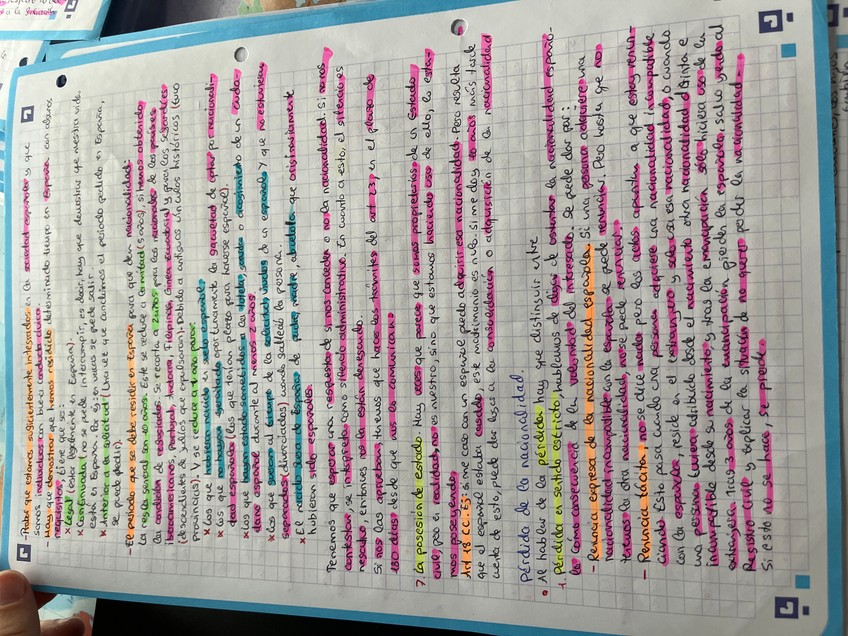 - Probar que estamos suficientemente integrados en la sociedad española y que
somos individuos de buena conducta cívica.
- Hay que demostrar que hemos residido determinado tiempo en España con
requisitos. Tiene que ser:
x Legal (estar legalmente en España).
x Continuada (no se puede interrumpir, es decir, hay que demostrar que nuestra vida
está en España. Por es en vacas se puede salir.
x Anterior a la solicitud (una vez que cumplimos el periodo pedido en España,
se puede pedir).
- El periodo que se debe residir en España para que den nacionalidad:
La regla general son 10 años. Este se reduce a la mitad (5 años), si hemos obtenido
la condición de refugiados. Se recorta a 2 años para los nacionales de los países
iberoamericanos, Portugal, Andorra, Filipinas, Guinea Ecuatorial y para los sefardíes
(descendientes de judíos que expulsaron). Debido a antiguos vínculos históricos (tuvo
provincias). Y se reduce a 1 año para:
x Los que hubieran nacido en suelo español.
x Los que no hayan ejercitado oportunamente la facultad de optar por nacionali-
dad española (los que tenían plazo para hacerse español).
x Los que hayan estado sometidos a la tutela, guarda o acogimiento de un ciuda-
dano español durante al menos 2 años.
x Los que fueran al tiempo de la solicitud viudos de un español y que no estuvieran
separados (divorciados) cuando falleció la persona.
x El nacido fuera de España de padre, madre, abuelo/a que originariamente
hubieran sido españoles.
Tenemos que esperar una respuesta de si nos conceden o no la nacionalidad. Si no nos
contestan, se interpreta como silencio administrativo. En cuanto a esto, el silencio es
negativo, entonces nos la están denegando.
Si nos la aprueban tenemos que hacer los trámites del art 23, en el plazo de
180 días desde que nos lo comunicaron.
7. La posesión de estado. Hay veces que parece que somos propietarios de un Estado
civil, pero en realidad, no es nuestro, sino que estamos haciendo uso de ello, lo esta-
mos poseyendo
Art 18 CC. Ej: si me caso con un español puedo adquirir esa nacionalidad. Pero resulta
que el español estaba casado, este matrimonio es nulo. Si me doy 10 años más tarde
cuenta de esto, puede dar lugar a la consolidación o adquisición de la nacionalidad
Pérdida de la nacionalidad.
• Al hablar de la pérdida hay que distinguir entre
1. Pérdida en sentido estricto, hablamos de dejar de ostentar la nacionalidad españo-
la como consecuencia de la voluntad del interesado. Se puede dar por:
- Renuncia expresa de la nacionalidad española. Si una persona adquiere una
nacionalidad incompatible con la española se puede renunciar. Pero hasta que no
tenemos la otra nacionalidad, no se puede renunciar.
- Renuncia tácita: no se dice nada pero los actos apuntan a que estoy renun-
ciando. Esto pasa cuando una persona adquiere una nacionalidad incompatible
con la española, reside en el extranjero y solo usa esa nacionalidad, o cuando
una persona tuviera atribuida desde el nacimiento otra nacionalidad distinta e
incompatible desde su nacimiento, y tras la emancipación solo hiciera uso de la
extranjera. Tras 3 años de la emancipación pierden la española, salvo yendo al
Registro Civil y explicar la situación de no querer perder la nacionalidad.
Si esto no se hace, se pierde.